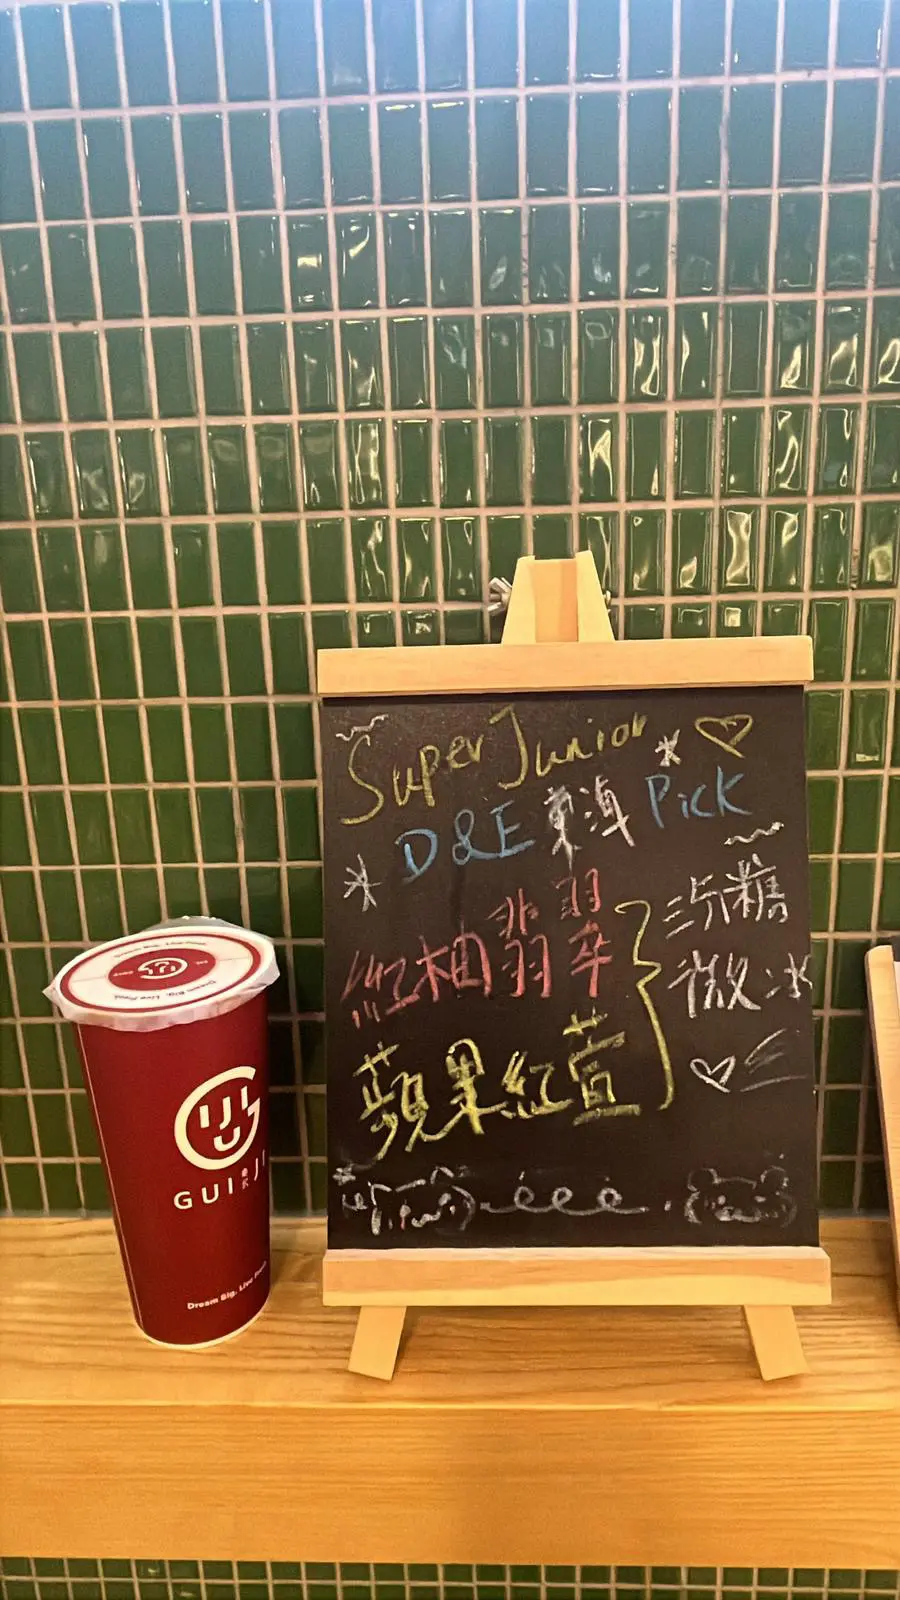 Super Junior
D&E 東海 Pick
紅柚翡翠
蘋果紅萱
微冰
GUIJI
GUI JI
Dream Big. Live Fresh